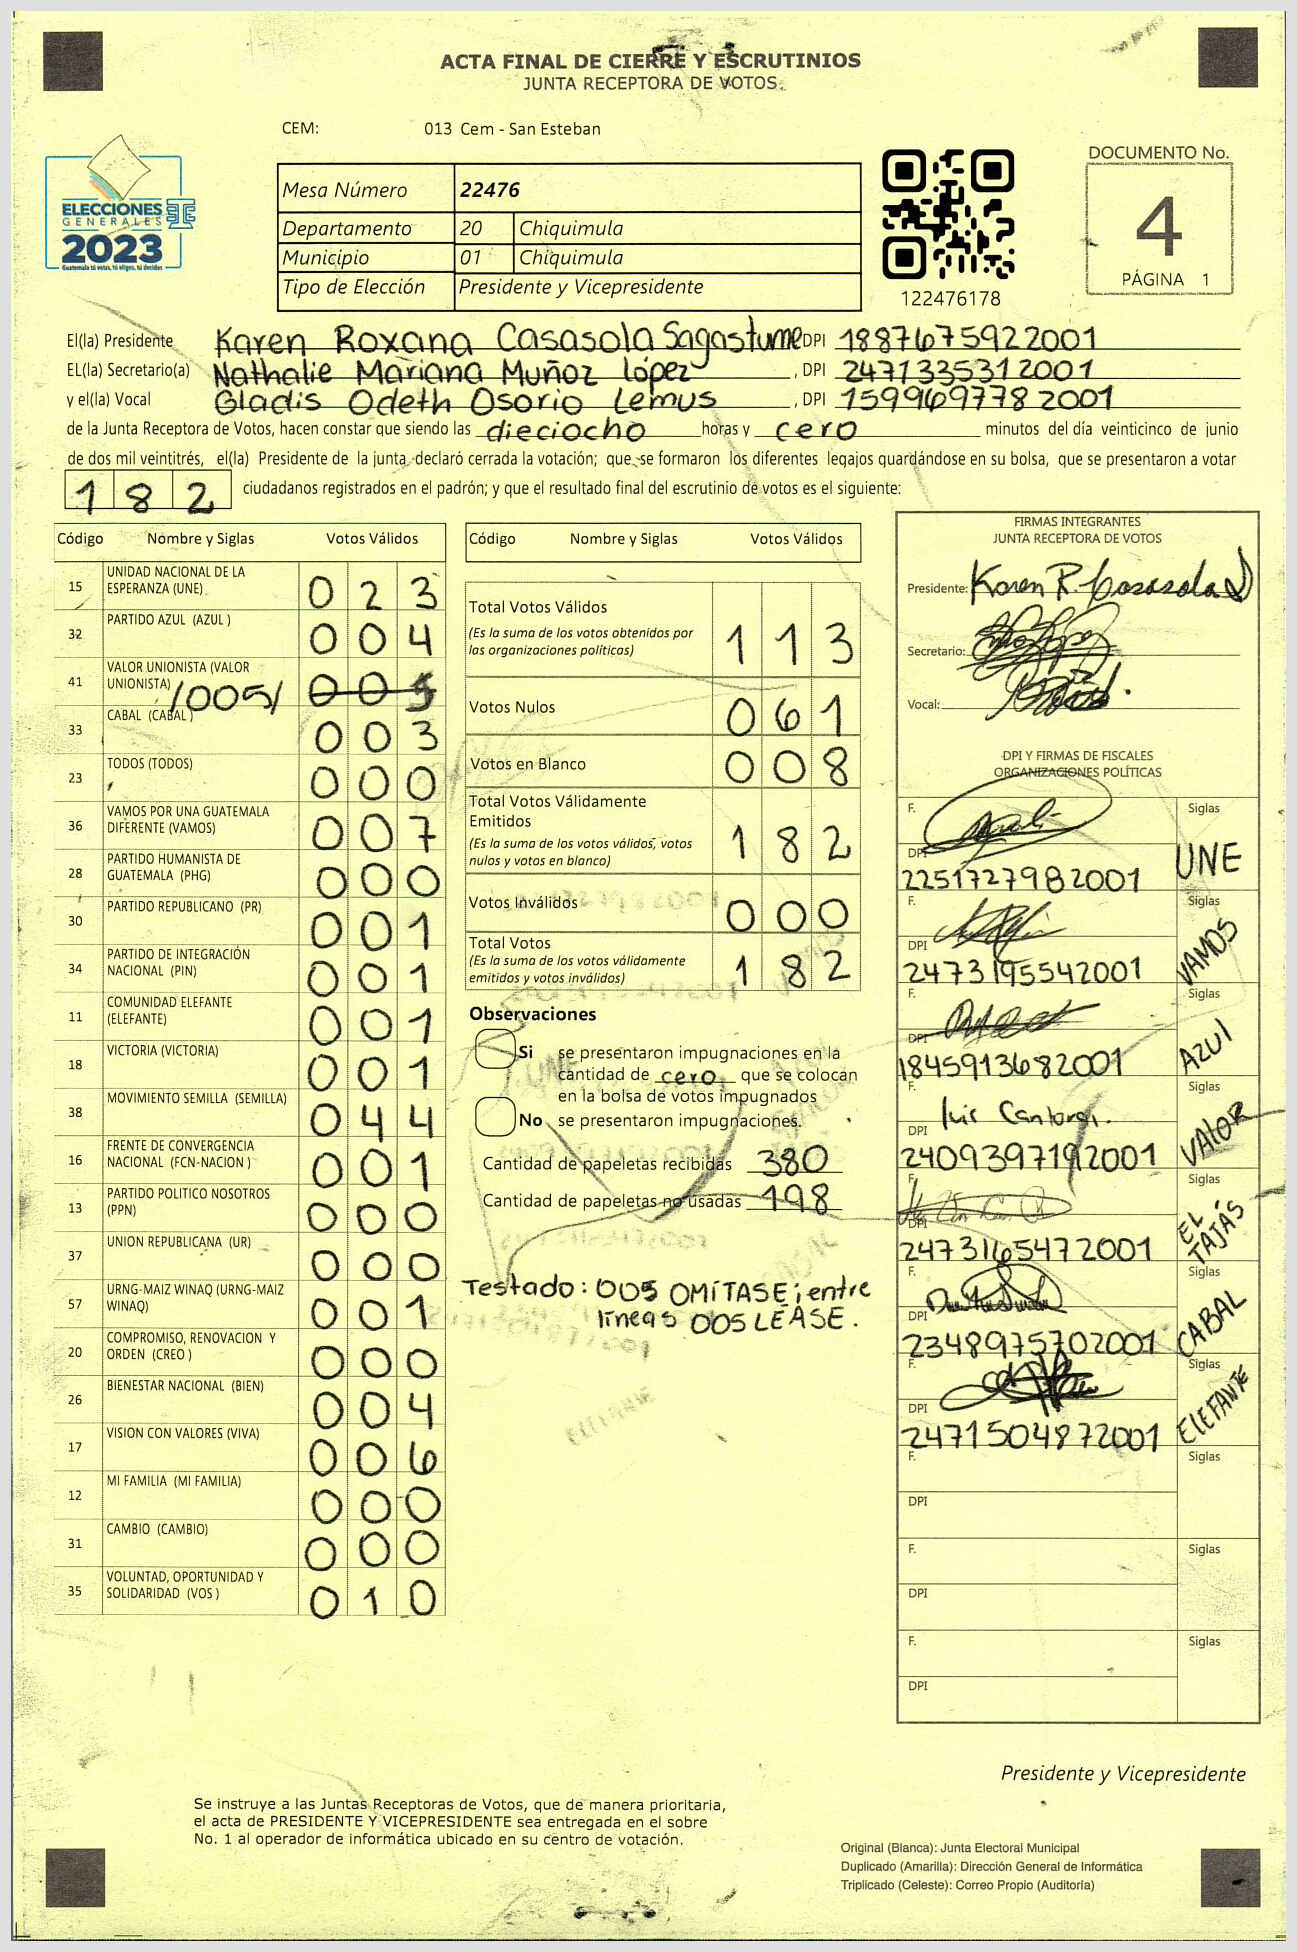 ACTA FINAL DE CIERRE Y ESCRUTINIOS
JUNTA RECEPTORA DE VOTOS.
CEM: 013 Cem - San Esteban
ELECCIONES
GENERALES
2023
Guatemala tú votas, tú eliges, tú decides
TSE
Mesa Número 22476
Departamento 20 Chiquimula
Municipio 01 Chiquimula
Tipo de Elección Presidente y Vicepresidente
122476178
DOCUMENTO No.
4
PÁGINA 1
El(la) Presidente Karen Roxana Casasola Sagastume DPI 1887675922001
EL(la) Secretario(a) Nathalie Mariana Muñoz López , DPI 2471335312001
y el(la) Vocal Gladis Odeth Osorio Lemus , DPI 1599697782001
de la Junta Receptora de Votos, hacen constar que siendo las dieciocho horas y cero minutos del día veinticinco de junio
de dos mil veintitrés, el(la) Presidente de la junta declaró cerrada la votación; que se formaron los diferentes legajos guardándose en su bolsa, que se presentaron a votar
182 ciudadanos registrados en el padrón; y que el resultado final del escrutinio de votos es el siguiente:
Código Nombre y Siglas Votos Válidos
15 UNIDAD NACIONAL DE LA ESPERANZA (UNE) 023
32 PARTIDO AZUL (AZUL ) 004
41 VALOR UNIONISTA (VALOR UNIONISTA) /005/ 005
33 CABAL (CABAL ) 003
23 TODOS (TODOS) 000
36 VAMOS POR UNA GUATEMALA DIFERENTE (VAMOS) 007
28 PARTIDO HUMANISTA DE GUATEMALA (PHG) 000
30 PARTIDO REPUBLICANO (PR) 001
34 PARTIDO DE INTEGRACIÓN NACIONAL (PIN) 001
11 COMUNIDAD ELEFANTE (ELEFANTE) 001
18 VICTORIA (VICTORIA) 001
38 MOVIMIENTO SEMILLA (SEMILLA) 044
16 FRENTE DE CONVERGENCIA NACIONAL (FCN-NACION ) 001
13 PARTIDO POLITICO NOSOTROS (PPN) 000
37 UNION REPUBLICANA (UR) 000
57 URNG-MAIZ WINAQ (URNG-MAIZ WINAQ) 001
20 COMPROMISO, RENOVACION Y ORDEN (CREO ) 000
26 BIENESTAR NACIONAL (BIEN) 004
17 VISION CON VALORES (VIVA) 006
12 MI FAMILIA (MI FAMILIA) 000
31 CAMBIO (CAMBIO) 000
35 VOLUNTAD, OPORTUNIDAD Y SOLIDARIDAD (VOS ) 010
Código Nombre y Siglas Votos Válidos
Total Votos Válidos 113
(Es la suma de los votos obtenidos por
las organizaciones políticas)
Votos Nulos 061
Votos en Blanco 008
Total Votos Válidamente
Emitidos 182
(Es la suma de los votos válidos, votos
nulos y votos en blanco)
Votos Inválidos 000
Total Votos 182
(Es la suma de los votos válidamente
emitidos y votos inválidos)
Observaciones
Si se presentaron impugnaciones en la
cantidad de cero que se colocan
en la bolsa de votos impugnados
No se presentaron impugnaciones.
Cantidad de papeletas recibidas 380
Cantidad de papeletas no usadas 198
Testado: 005 OMÍTASE; entre
líneas 005 LÉASE.
FIRMAS INTEGRANTES
JUNTA RECEPTORA DE VOTOS
Presidente: Karen R. Casasola S
Secretario:
Vocal:
DPI Y FIRMAS DE FISCALES
ORGANIZACIONES POLÍTICAS
F. Siglas
DPI 2251727982001 UNE
F. Siglas
DPI 2473195542001 VAMOS
F. Siglas
DPI 1845913682001 AZUL
F. Luis Siglas
DPI 2409397192001 VALOR
F. Siglas
DPI 2473165472001 EL TAJÁS
F. Siglas
DPI 2348975702001 CABAL
F. Siglas
DPI 2471504872001 ELEFANTE
F. Siglas
DPI
F. Siglas
DPI
F. Siglas
DPI
Presidente y Vicepresidente
Se instruye a las Juntas Receptoras de Votos, que de manera prioritaria,
el acta de PRESIDENTE Y VICEPRESIDENTE sea entregada en el sobre
No. 1 al operador de informática ubicado en su centro de votación.
Original (Blanca): Junta Electoral Municipal
Duplicado (Amarilla): Dirección General de Informática
Triplicado (Celeste): Correo Propio (Auditoría)